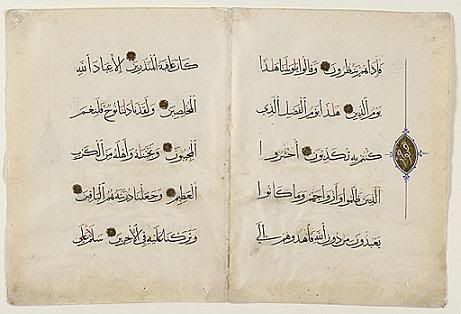 فاذا هم ينظرون وقالوا يويلنا هذا
يوم الدين هذا يوم الفصل الذي
كنتم به تكذبون احشروا
الذين ظلموا وازواجهم وما كانوا
يعبدون من دون الله فاهدوهم الى
كان عاقبة المنذرين الا عباد الله
المخلصين ولقد نادانا نوح فلنعم
المجيبون ونجيناه واهله من الكرب
العظيم وجعلنا ذريته هم الباقين
وتركنا عليه في الاخرين سلام على